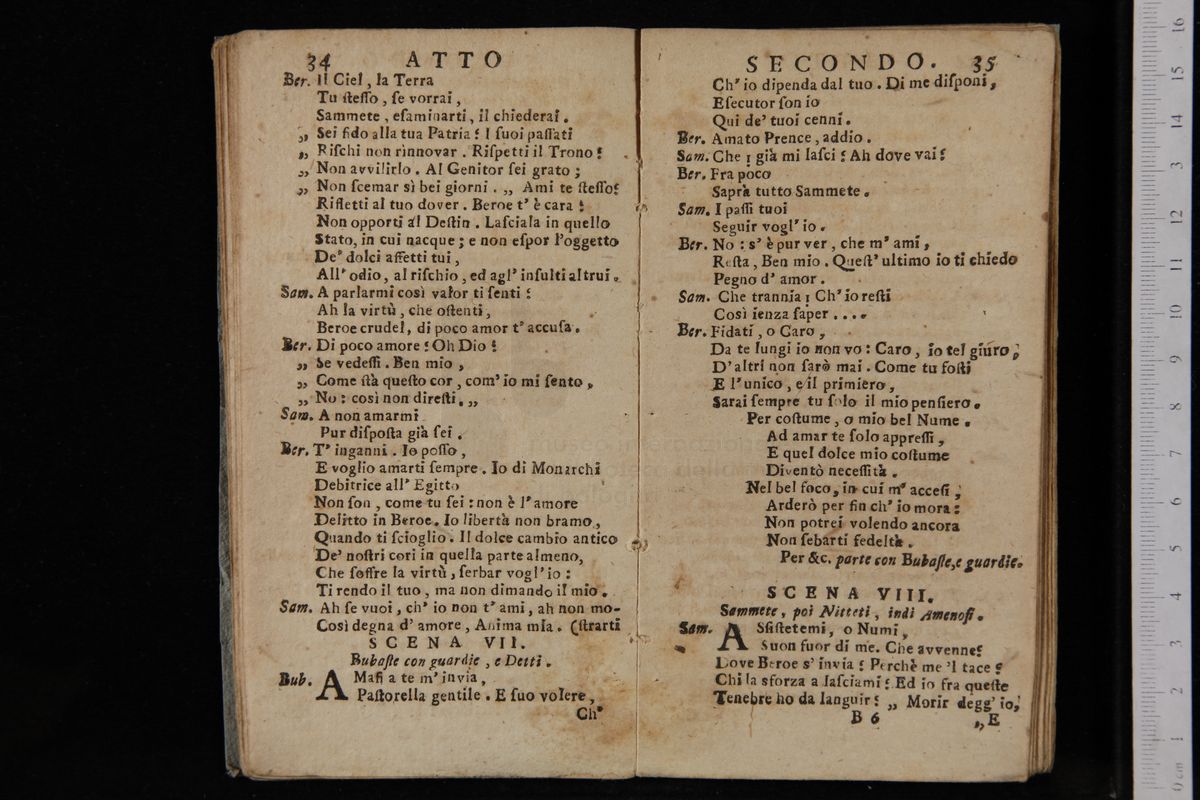 34 ATTO
Ber. Il Ciel, la Terra
Tu ſteſſo, ſe vorrai,
Sammete, eſaminarti, il chiederai.
„ Sei fido alla tua Patria? I ſuoi paſſati
„ Riſchi non rinnovar. Riſpetti il Trono?
„ Non avvilirlo. Al Genitor ſei grato;
„ Non ſcemar sì bei giorni. „ Ami te ſteſſo?
Rifletti al tuo dover. Beroe t' è cara?
Non opporti al Deſtin. Laſciala in quello
Stato, in cui nacque; e non eſpor l'oggetto
De' dolci affetti tui,
All' odio, al riſchio, ed agl' inſulti altrui.
Sam. A parlarmi così valor ti ſenti?
Ah la virtù, che oſtenti,
Beroe crudel, di poco amor t' accuſa.
Ber. Di poco amore? Oh Dio!
„ Se vedeſſi. Ben mio,
„ Come ſtà queſto cor, com' io mi ſento,
„ No: così non direſti. „
Sam. A non amarmi
Pur diſpoſta già ſei.
Ber. T' inganni. Io poſſo,
E voglio amarti ſempre. Io di Monarchi
Debitrice all' Egitto
Non ſon, come tu ſei: non è l' amore
Delitto in Beroe. Io libertà non bramo,
Quando ti ſcioglio. Il dolce cambio antico
De' noſtri cori in quella parte almeno,
Che ſoffre la virtù, ſerbar vogl' io:
Ti rendo il tuo, ma non dimando il mio.
Sam. Ah ſe vuoi, ch' io non t' ami, ah non mo-
Così degna d' amore, Anima mia. (ſtrarti
SCENA VII.
Bubaſte con guardie, e Detti.
Bub. AMaſi a te m' invia,
Paſtorella gentile. E ſuo volere,
Ch'
SECONDO. 35
Ch' io dipenda dal tuo. Di me diſponi,
Eſecutor ſon io
Qui de' tuoi cenni.
Ber. Amato Prence, addio.
Sam. Che! già mi laſci? Ah dove vai?
Ber. Fra poco
Saprà tutto Sammete.
Sam. I paſſi tuoi
Seguir vogl' io.
Ber. No: s' è pur ver, che m' ami,
Reſta, Ben mio. Queſt' ultimo io ti chiedo
Pegno d' amor.
Sam. Che trannia! Ch' io reſti
Così ſenza ſaper ....
Ber. Fidati, o Caro,
Da te lungi io non vo: Caro, io tel giuro;
D' altri non farò mai. Come tu foſti
E l' unico, e il primiero,
Sarai ſempre tu ſolo il mio penſiero.
Per coſtume, o mio bel Nume.
Ad amar te ſolo appreſſi,
E quel dolce mio coſtume
Diventò neceſſità.
Nel bel foco, in cui m' acceſi,
Arderò per fin ch' io mora:
Non potrei volendo ancora
Non ſebarti fedeltà.
Per &c. parte con Bubaſte, e guardie.
SCENA VIII.
Sammete, poi Nitteti, indi Amenofi.
Sam. ASſiſtetemi, o Numi,
Suon fuor di me. Che avvenne?
Dove Beroe s' invia? Perchè me 'l tace?
Chi la sforza a laſciami? Ed io fra queſte
Tenebre ho da languir? „ Morir degg' io,
B 6 „ E